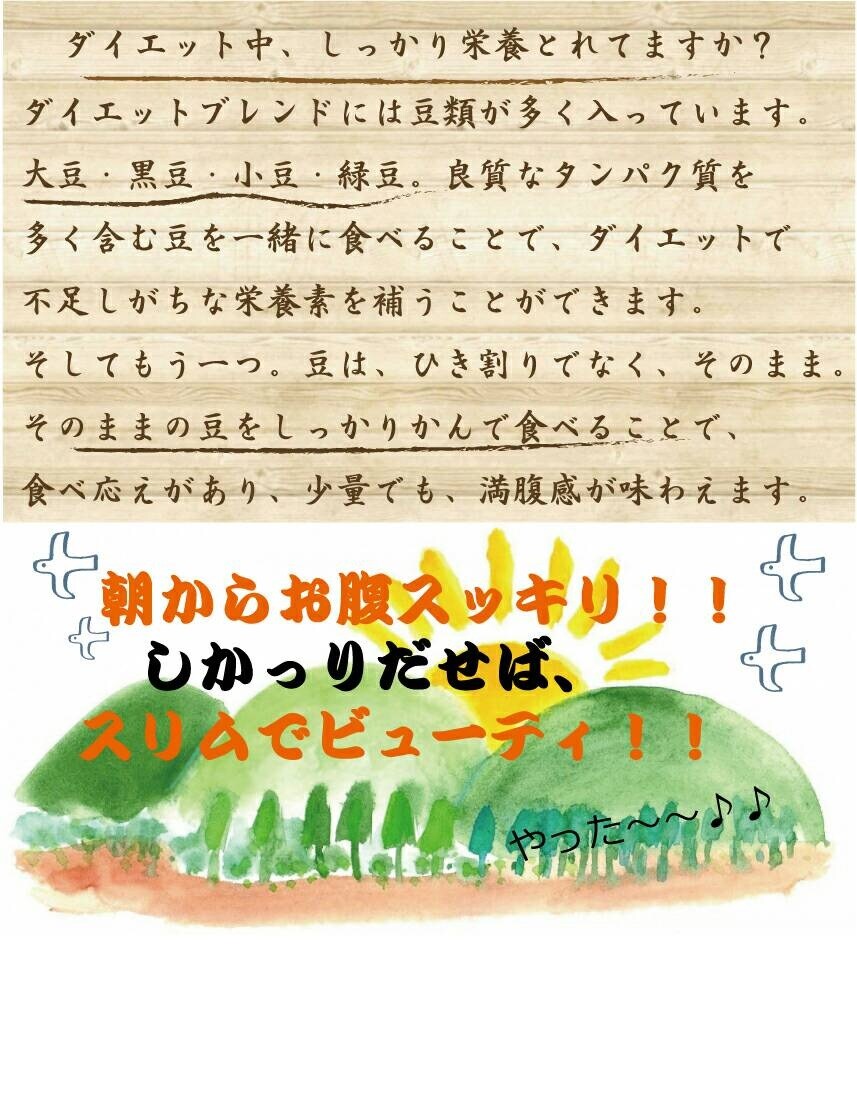 ダイエット中、しっかり栄養とれてますか？
ダイエットブレンドには豆類が多く入っています。
大豆・黒豆・小豆・緑豆。良質なタンパク質を
多く含む豆を一緒に食べることで、ダイエットで
不足しがちな栄養素を補うことができます。
そしてもう一つ。豆は、ひき割りでなく、そのまま。
そのままの豆をしっかりかんで食べることで、
食べ応えがあり、少量でも、満腹感が味わえます。
朝からお腹スッキリ！！
しかっりだせば、
スリムでビューティ！！
やった～～♪♪